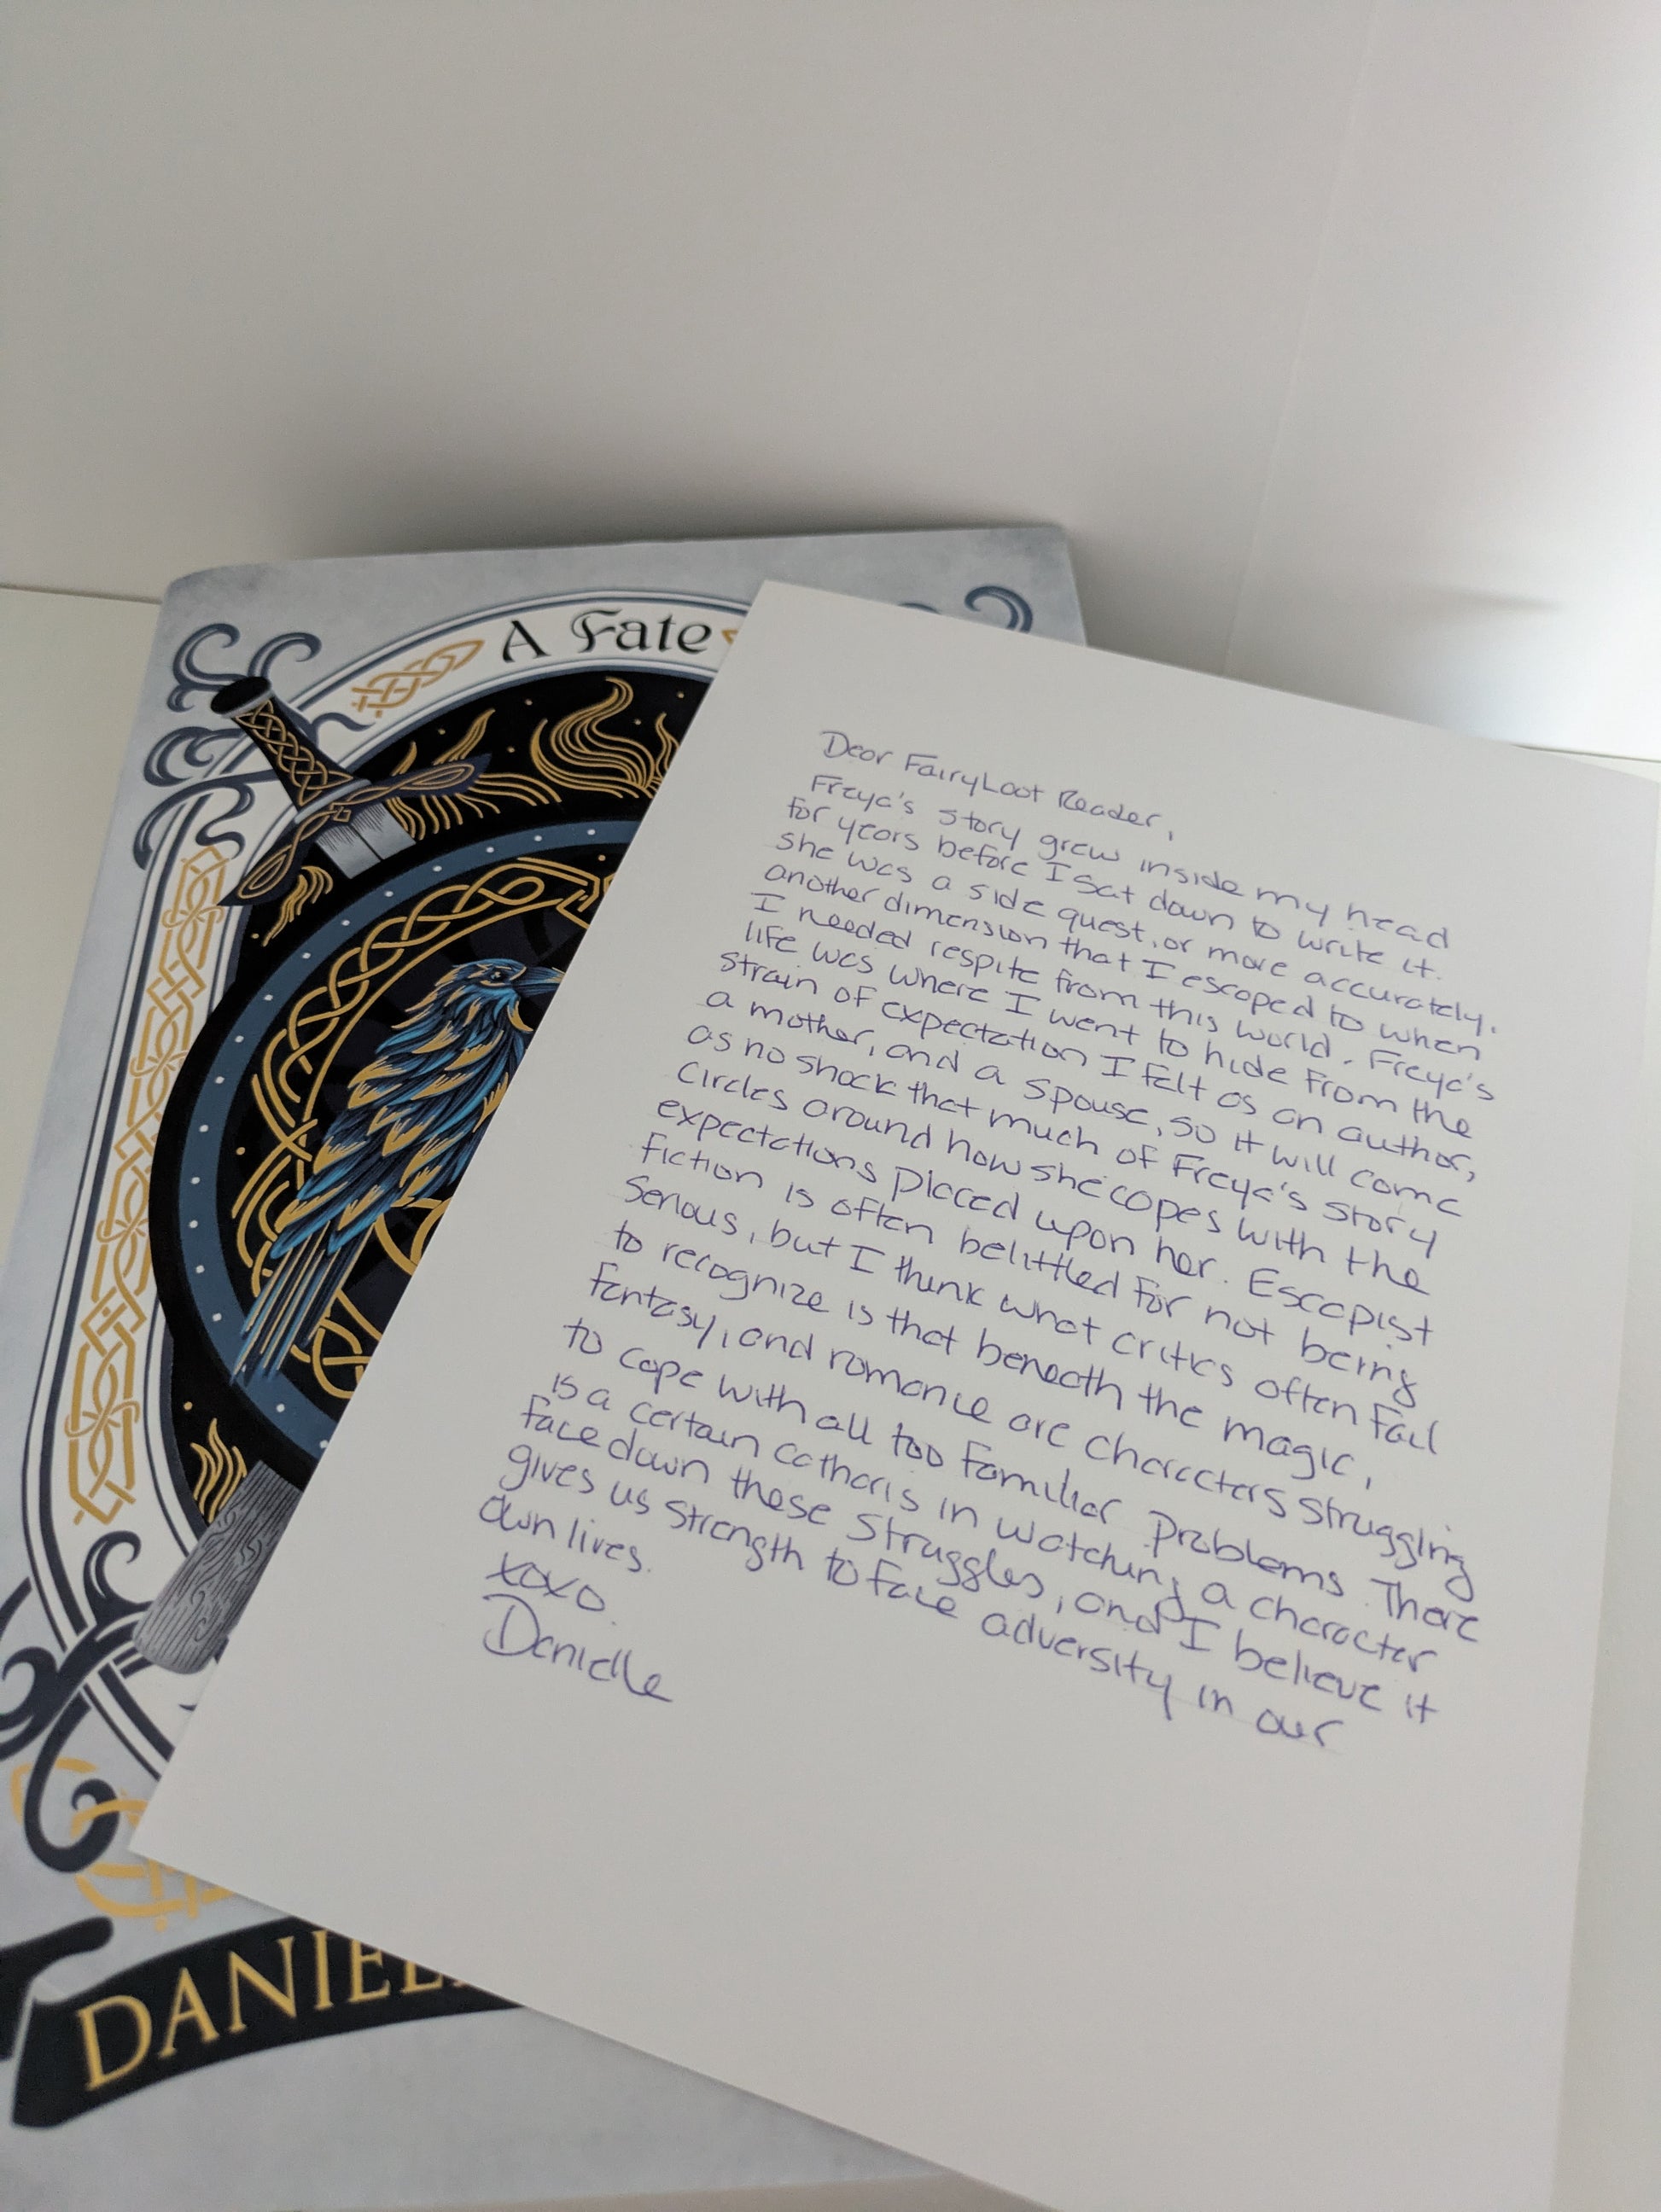 A Fate
Dear FairyLoot Reader,
Freya's story grew inside my head
for years before I sat down to write it.
she was a side quest, or more accurately,
another dimension that I escaped to when
I needed respite from this world. Freya's
life was where I went to hide from the
strain of expectation I felt as an author,
a mother, and a spouse, so it will come
as no shock that much of Freya's story
circles around how she copes with the
expectations placed upon her. Escapist
fiction is often belittled for not being
serious, but I think what critics often fail
to recognize is that beneath the magic,
fantasy, and romance are characters struggling
to cope with all too familiar problems. There
is a certain catharis in watching a character
face down these struggles, and I believe it
gives us strength to face adversity in our
own lives.
xoxo.
Danielle
DANIEL